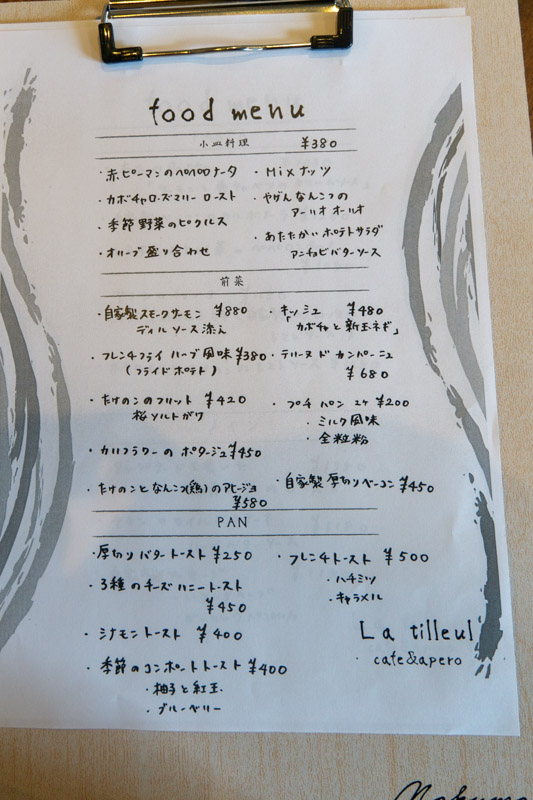 food menu
小皿料理 ¥380
・赤ピーマンのペペロナータ
・カボチャローズマリーロースト
・季節野菜のピクルス
・オリーブ盛り合わせ
・Mixナッツ
・やげんなんこつの
アーリオ オーリオ
・あたたかいポテトサラダ
アンチョビバターソース
前菜
・自家製スモークサーモン ¥880
ディルソース添え
・フレンチフライ ハーブ風味 ¥380
(フライドポテト)
・たけのこのフリット ¥420
桜ソルトがけ
・カリフラワーの ポタージュ ¥450
・たけのことなんこつ(鶏)のアヒージョ
¥580
・キッシュ ¥480
「カボチャと新玉ネギ」
・テリーヌ ド カンパーニュ
¥680
・プチ パン 2ケ ¥200
・ミルク風味
・全粒粉
・自家製厚切りベーコン ¥450
PAN
・厚切りバタートースト ¥250
・3種のチーズハニートースト
¥450
・シナモントースト ¥400
・季節のコンポートトースト ¥400
・柚子と紅玉
・ブルーベリー
・フレンチトースト ¥500
・ハチミツ
・キャラメル
La tilleul
cafe&apero